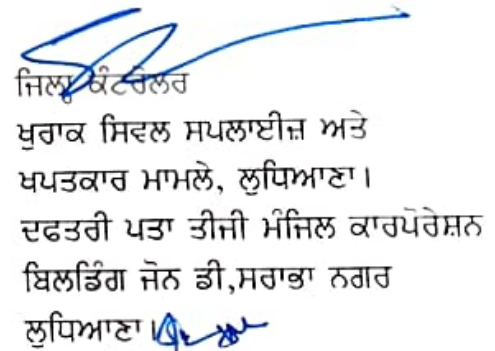 ਜਿਲ੍ਹਾ ਕੰਟਰੋਲਰ
ਖੁਰਾਕ ਸਿਵਲ ਸਪਲਾਈਜ਼ ਅਤੇ
ਖਪਤਕਾਰ ਮਾਮਲੇ, ਲੁਧਿਆਣਾ।
ਦਫਤਰੀ ਪਤਾ ਤੀਜੀ ਮੰਜਿਲ ਕਾਰਪੋਰੇਸ਼ਨ
ਬਿਲਡਿੰਗ ਜੋਨ ਡੀ,ਸਰਾਭਾ ਨਗਰ
ਲੁਧਿਆਣਾ।